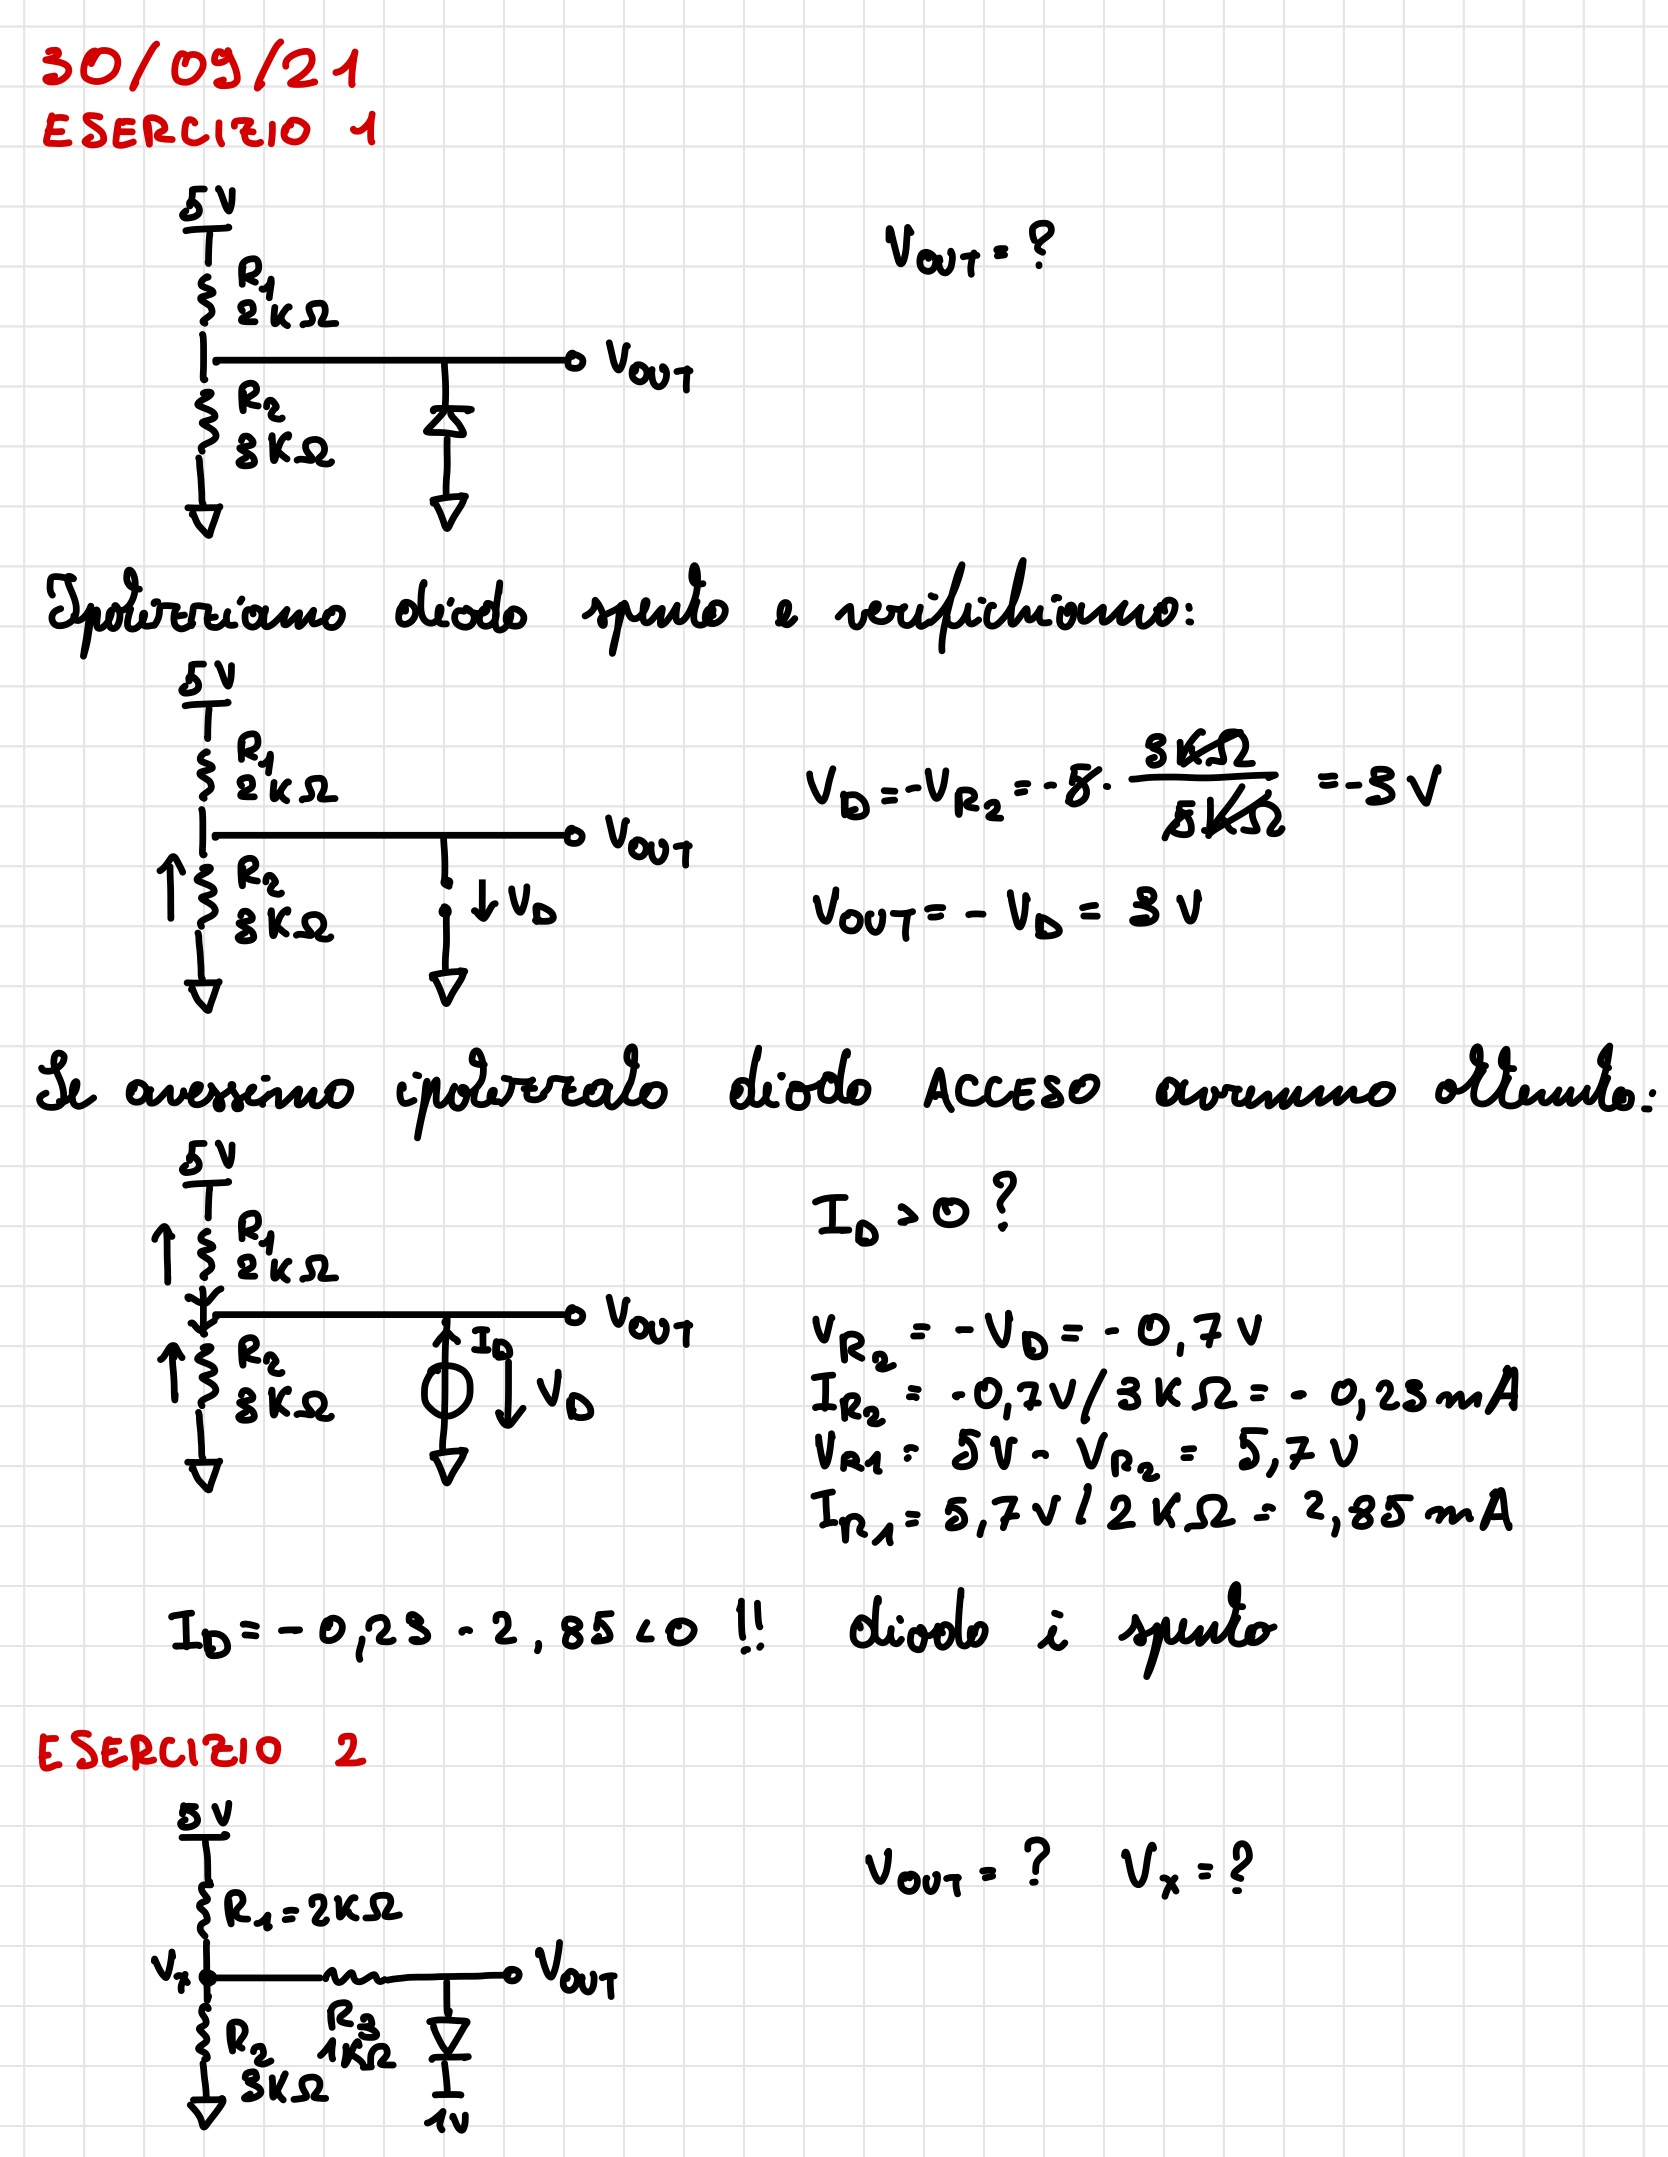 30/09/21
ESERCIZIO 1
5V
R1
2KΩ
VOUT = ?
VOUT
R2
3KΩ
Ipotizziamo diodo spento e verifichiamo:
5V
R1
2KΩ
VD = -VR2 = -5· 3KΩ/5KΩ = -3V
VOUT
R2
3KΩ
VD
VOUT = - VD = 3V
Se avessimo ipotizzato diodo ACCESO avremmo ottenuto:
5V
R1
2KΩ
ID > 0 ?
VOUT
R2
3KΩ
ID
VD
VR2 = - VD = - 0,7V
IR2 = -0,7V/3KΩ = - 0,23mA
VR1 = 5V - VR2 = 5,7V
IR1 = 5,7V/2KΩ = 2,85mA
ID = - 0,23 - 2,85 < 0 !! diodo è spento
ESERCIZIO 2
5V
R1=2KΩ
VOUT = ? Vx = ?
Vx
VOUT
R3
1KΩ
R2
3KΩ
1V